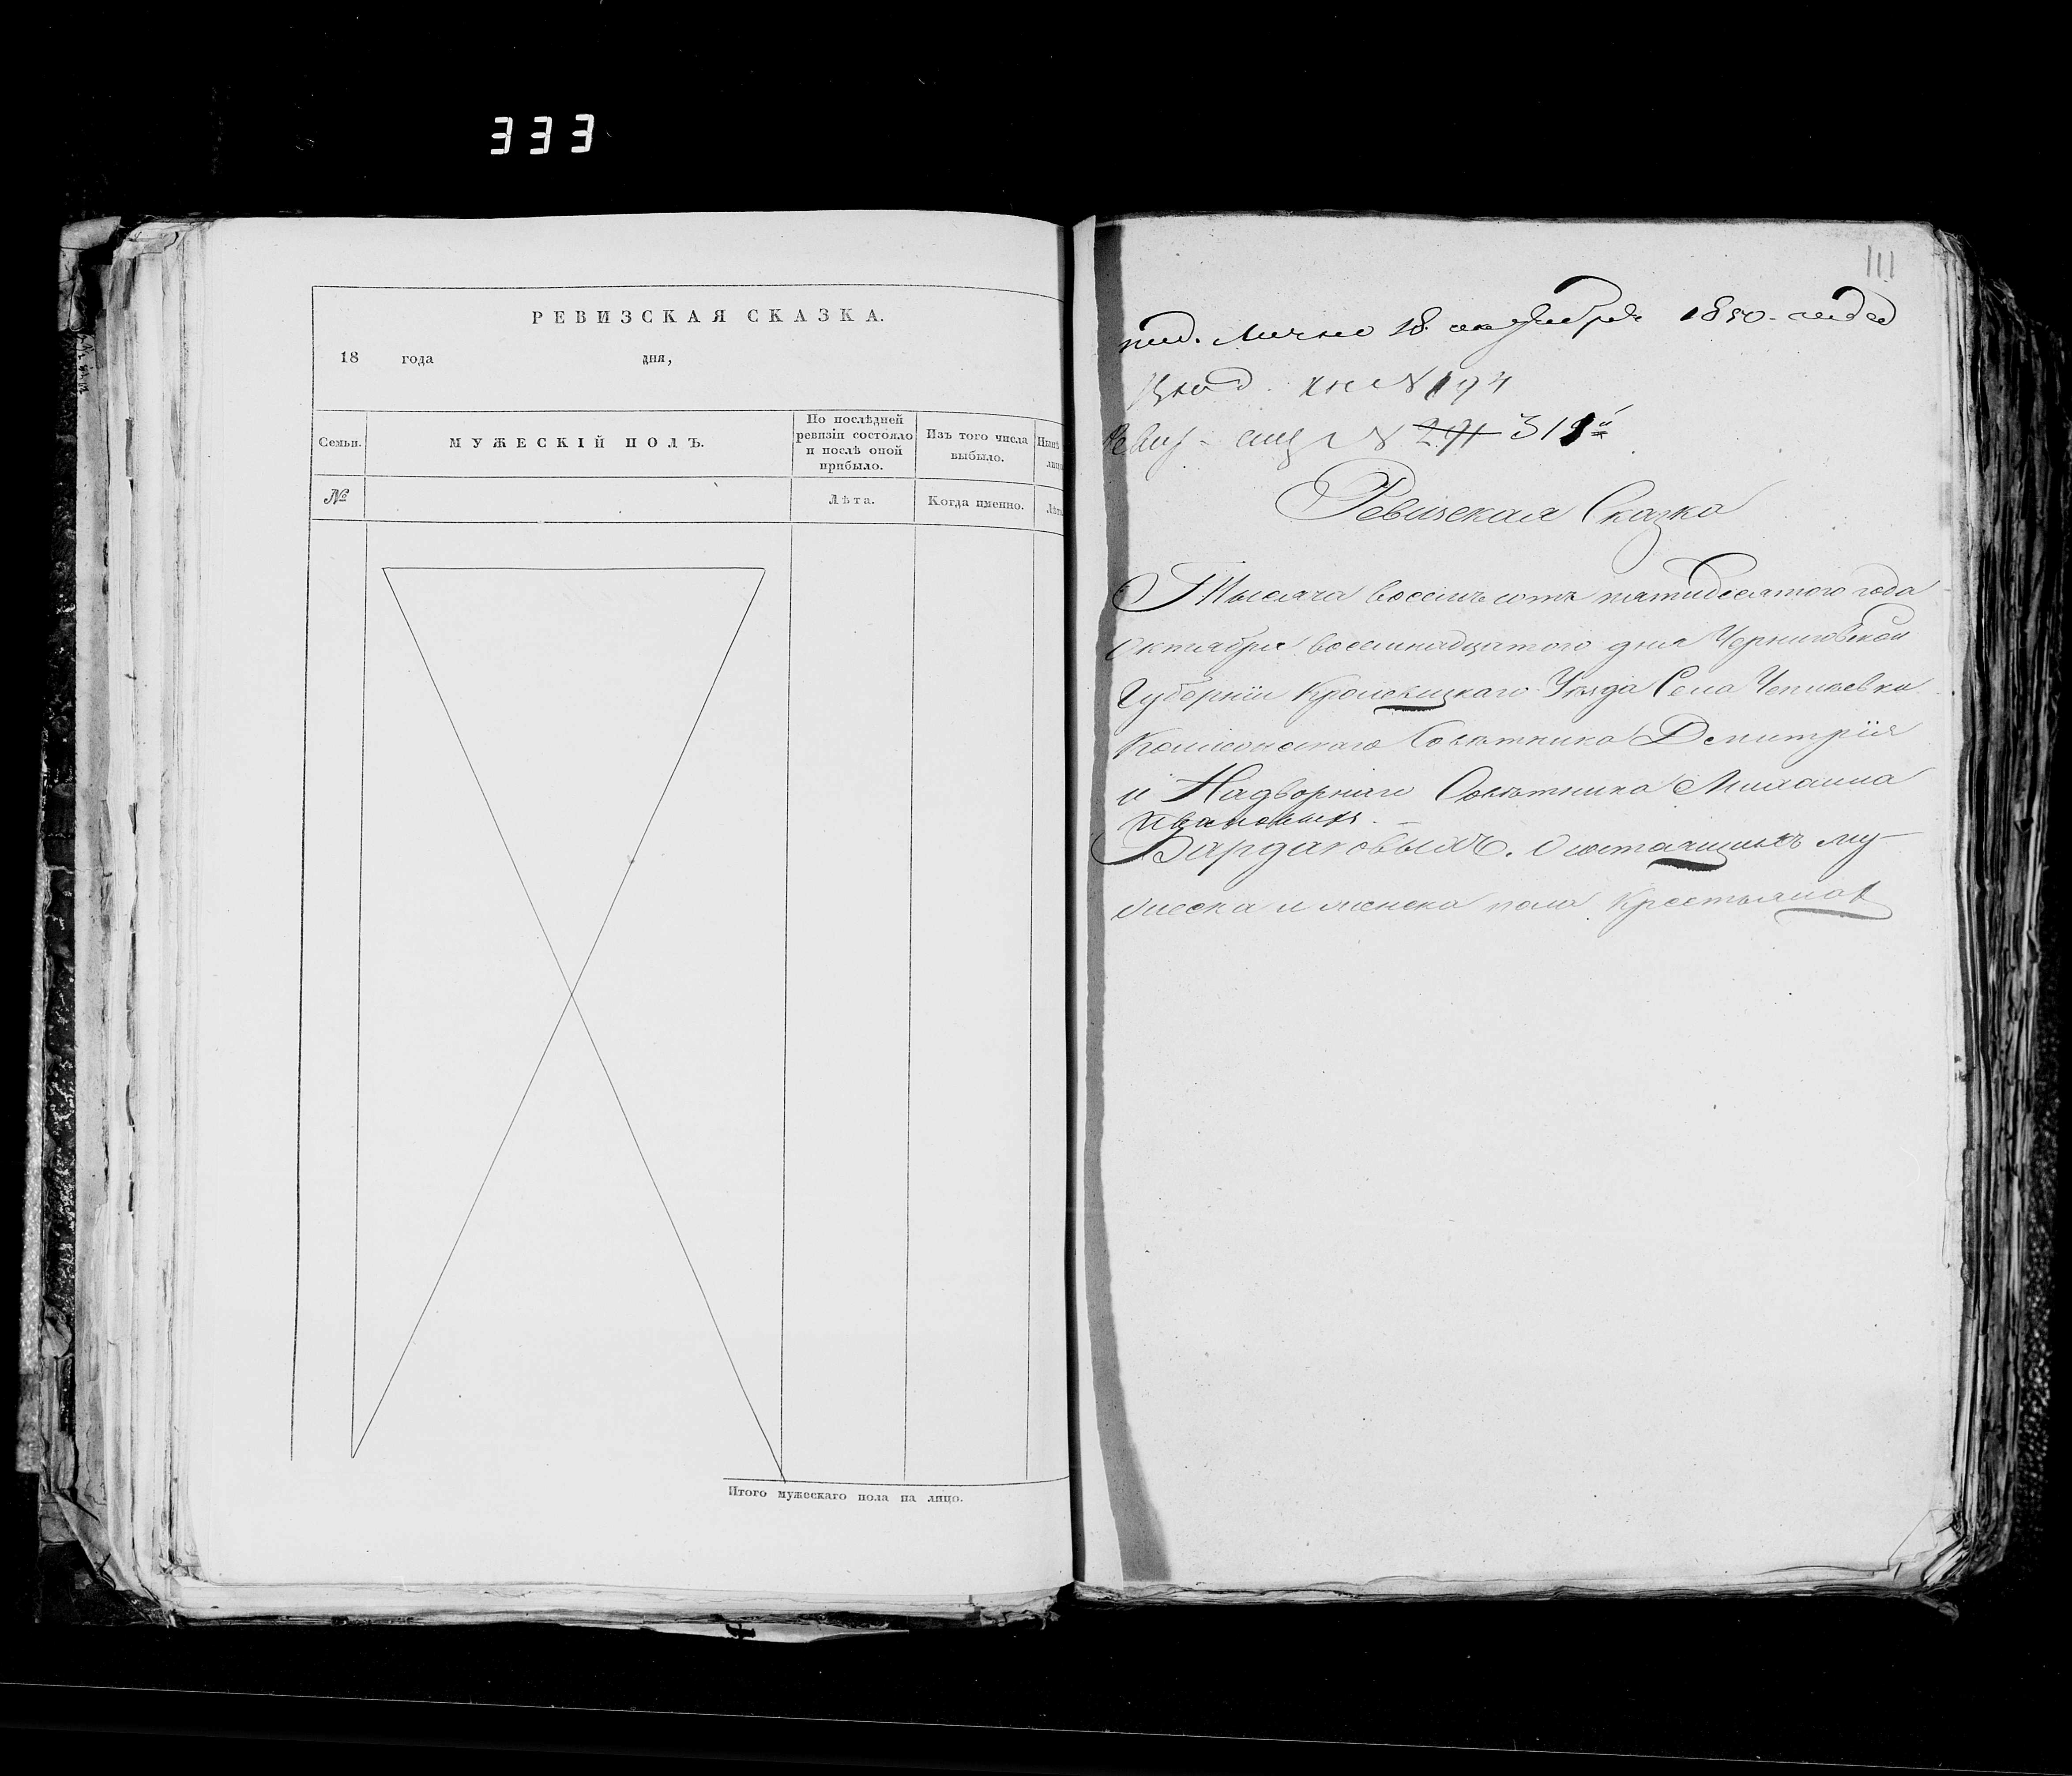 333
РЕВИЗСКАЯ СКАЗКА.
18 года дня,
Семьи.
МУЖЕСКІЙ ПОЛЪ.
По послѣдней
ревизіи состояло
и послѣ оной
прибыло.
Изъ того числа
выбыло.
№
Лѣта.
Когда именно.
Итого мужескаго пола на лицо.
111
под. лично 18 октября 1850. года
№ 194
№ 291 318й
Ревизская Сказка
Тысяча восемь сотъ пятидесятого года
Октября восемнадцатого дня Черниговской
Губерніи Кролевецкаго Уѣзда Села Чепиевки
Колежскаго Совѣтника Дмитрія
и Надворнаго Совѣтника Михаила
Ивановыхъ
Бардаковыхъ. О состоящихъ му
жеска и женска пола Крестьянах